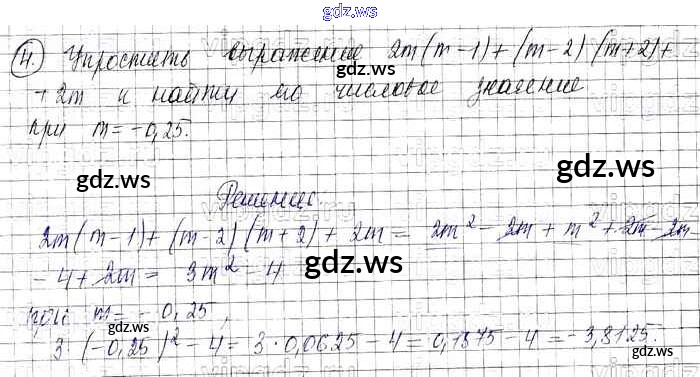 gdz.ws
4. Упростить выражение 2m(m-1)+(m-2)(m+2)+
+2m и найти его числовое значение
при m=-0,25.
gdz.ws
gdz.ws
gdz.ws
Решение:
2m(m-1)+(m-2)(m+2)+2m= 2m²-2m+m²+2m-2m
gdz.ws
-4+2m= 3m²-4
при m=-0,25,
gdz.ws
gdz.ws
3·(-0,25)²-4=3·0,0625-4=0,1875-4=-3,8125.